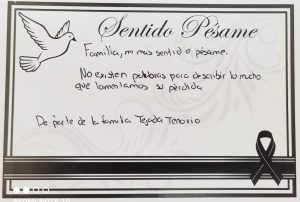 Sentido Pésame
Familia, mi mas sentido pésame.
No existen palabras para describir lo mucho
que lamentamos su pérdida
De parte de la familia Tejada Tenorio